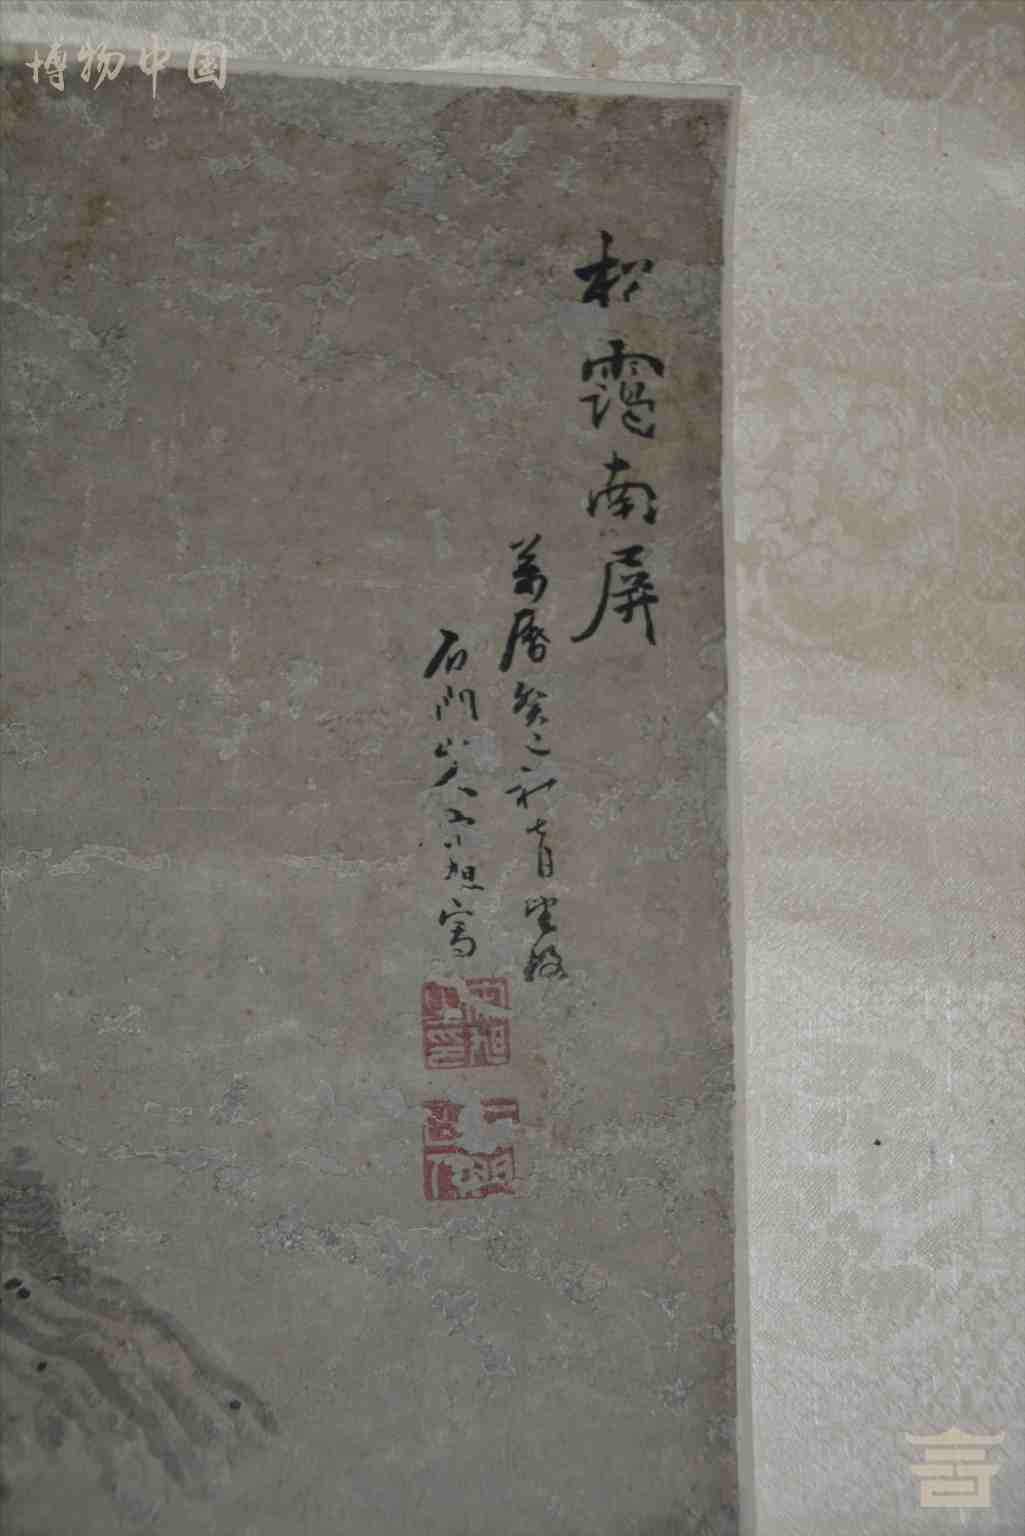 博物中国
松靄南屏
萬曆癸巳秋七月望後
石門山人宋旭寫